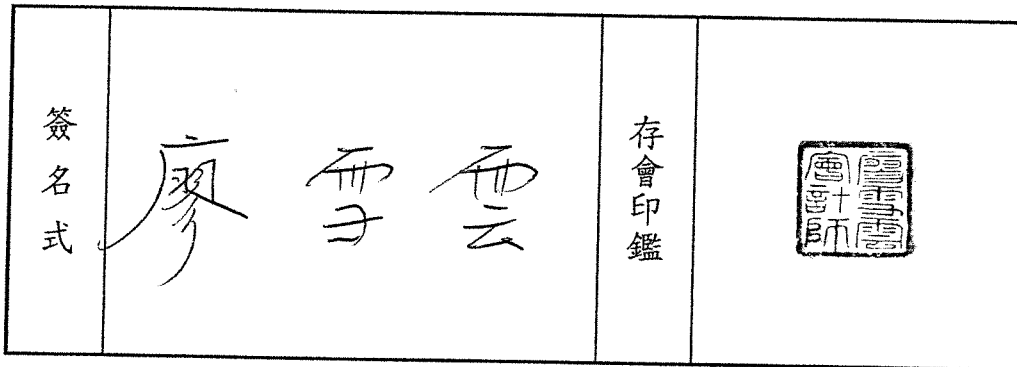 簽名式
廖雪雲
存會印鑑
廖雪雲
會計師